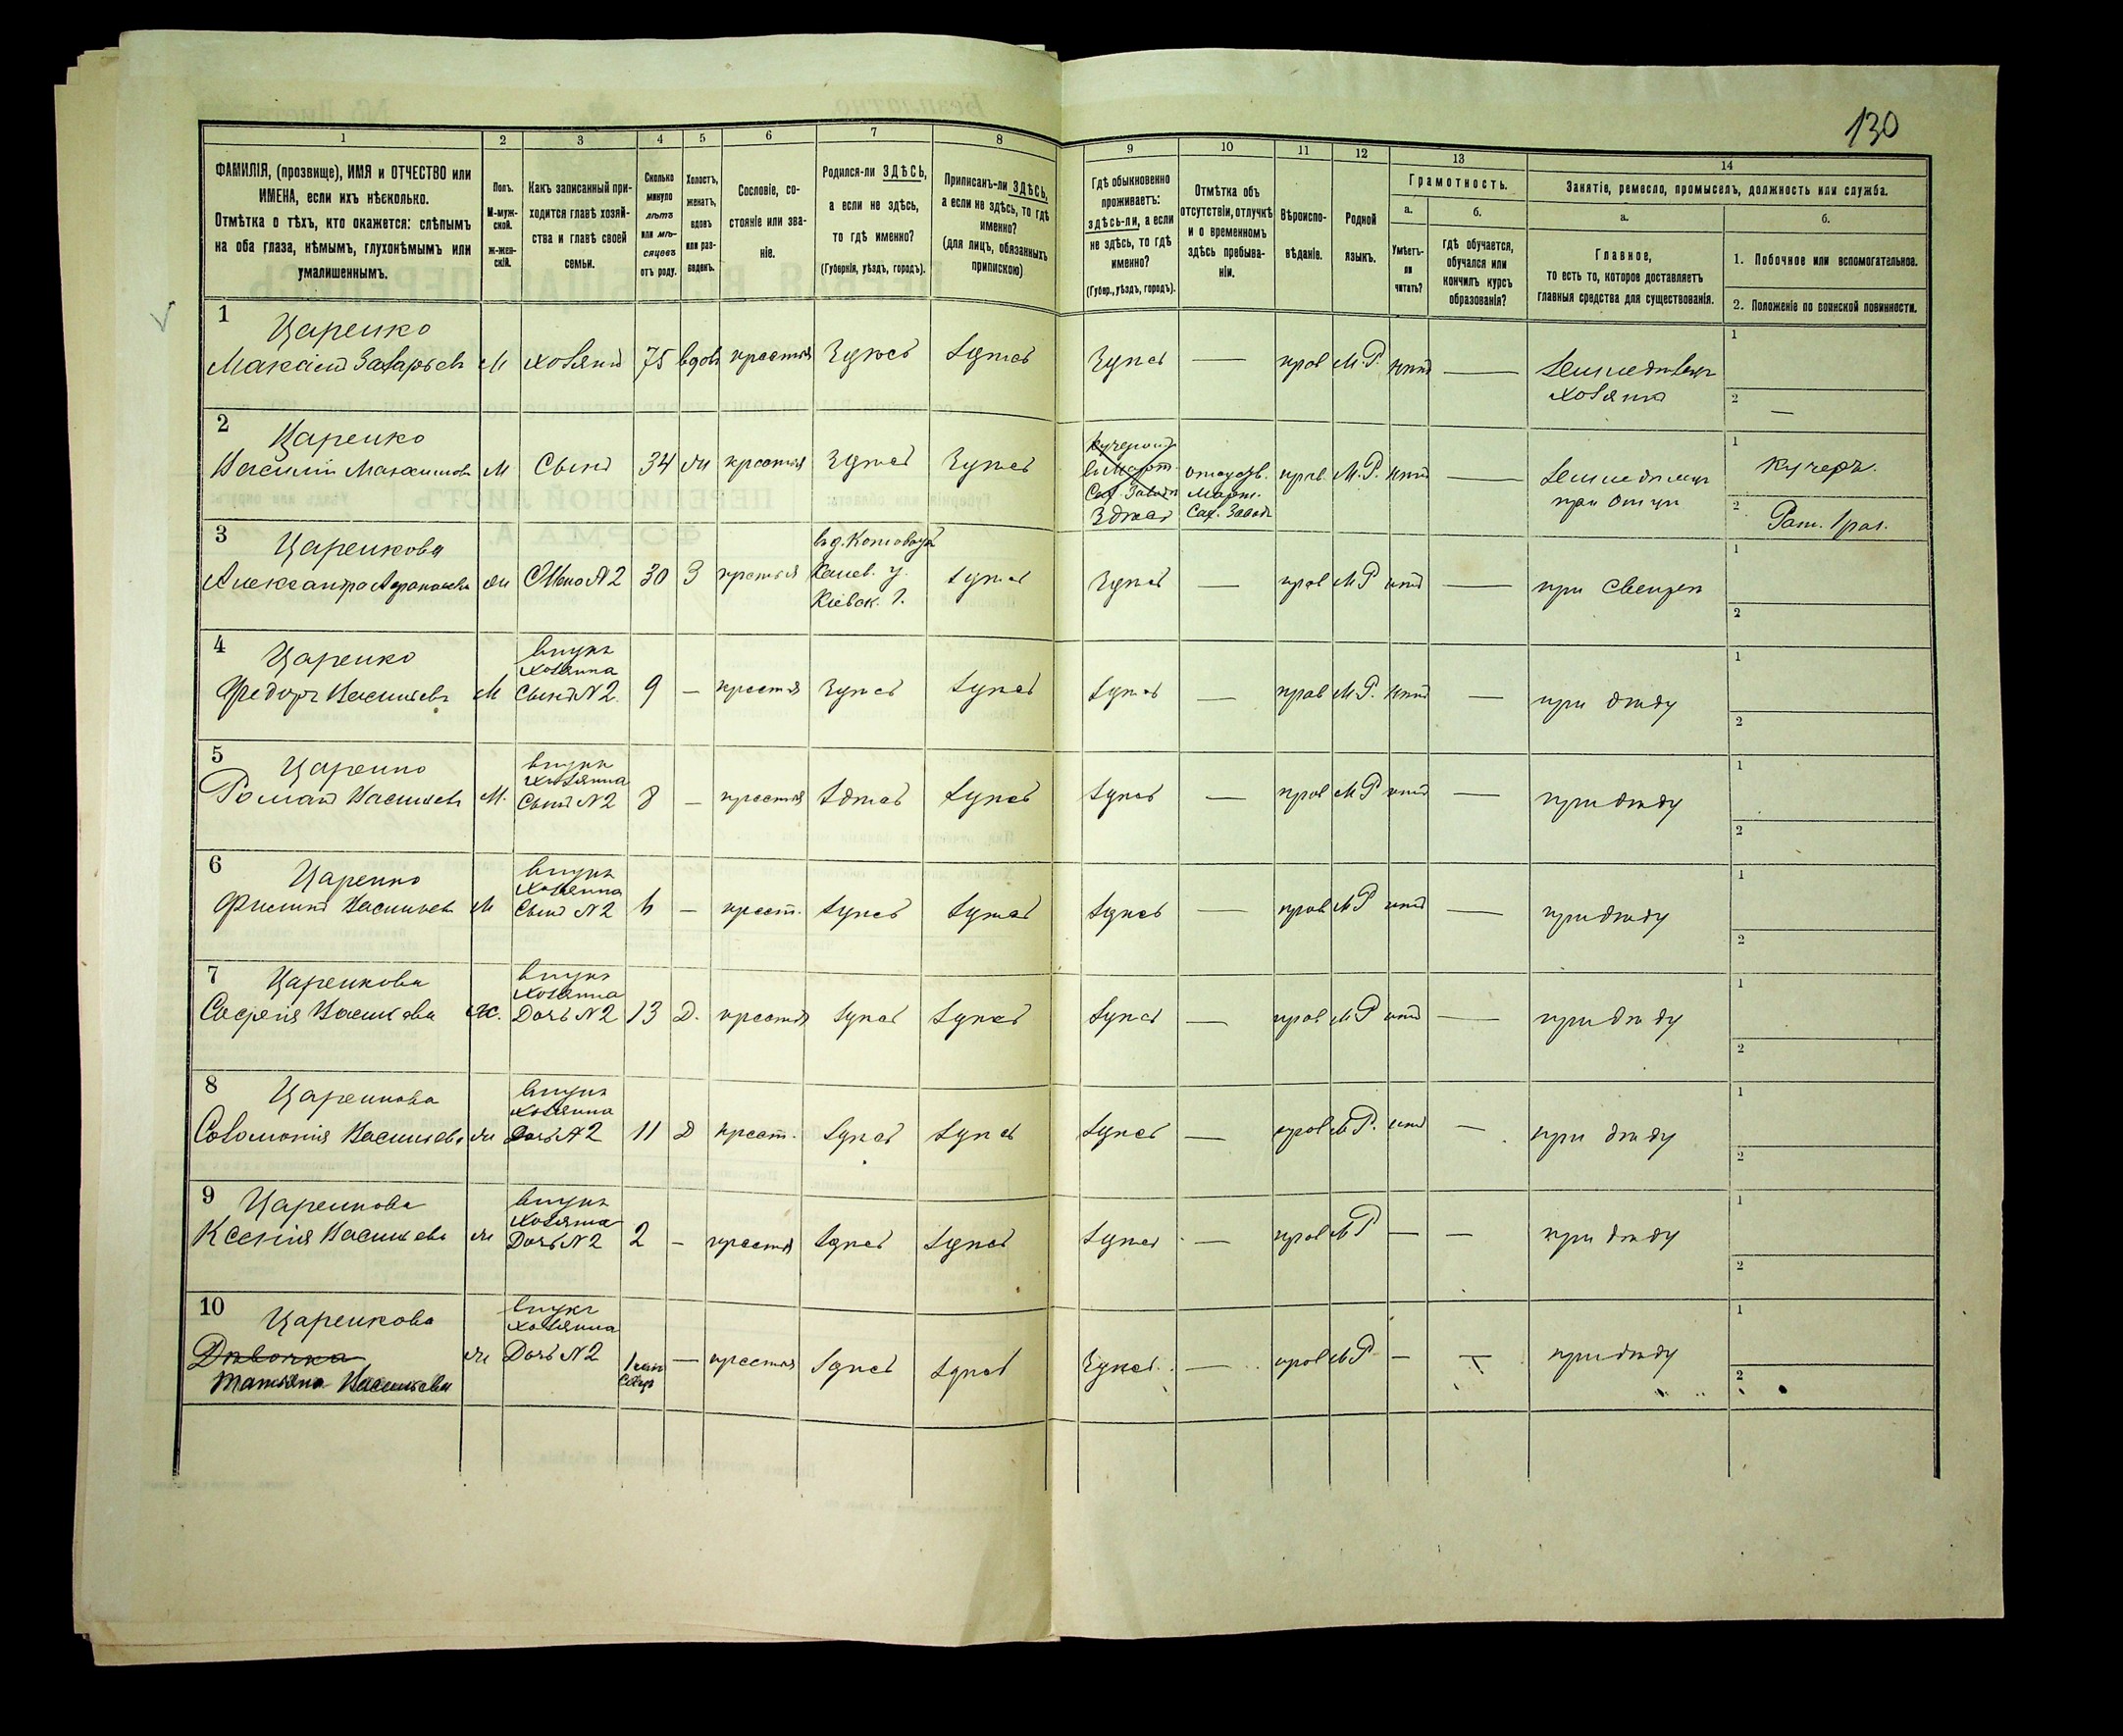 130
1 2 3 4 5 6 7 8 9 10 11 12 13 14
ФАМИЛІЯ, (прозвище), ИМЯ и ОТЧЕСТВО или
ИМЕНА, если ихъ нѣсколько.
Отмѣтка о тѣхъ, кто окажется: слѣпымъ
на оба глаза, нѣмымъ, глухонѣмымъ или
умалишеннымъ.
Полъ.
М-муж-
ской.
Ж-жен-
скій.
Какъ записанный при-
ходится главѣ хозяй-
ства и главѣ своей
семьи.
Сколько
минуло
лѣтъ
или мѣ-
сяцевъ
отъ роду.
Холостъ,
женатъ,
вдовъ
или раз-
веденъ.
Сословіе, со-
стояніе или зва-
ніе.
Родился-ли ЗДѢСЬ,
а если не здѣсь,
то гдѣ именно?
(Губернія, уѣздъ, городъ).
Приписанъ-ли ЗДѢСЬ,
а если не здѣсь, то гдѣ
именно?
(для лицъ, обязанныхъ
припискою)
Гдѣ обыкновенно
проживаетъ:
здѣсь-ли, а если
не здѣсь, то гдѣ
именно?
(Губер., уѣздъ, городъ).
Отмѣтка объ
отсутствіи, отлучкѣ
и о временномъ
здѣсь пребыва-
ніи.
Вѣроиспо-
вѣданіе.
Родной
языкъ.
Грамотность.
а.
Умѣетъ-
ли
читать?
б.
гдѣ обучается,
обучался или
кончилъ курсъ
образованія?
Занятіе, ремесло, промыселъ, должность или служба.
а.
Главное,
то есть то, которое доставляетъ
главныя средства для существованія.
б.
1. Побочное или вспомогательное.
2. Положеніе по воинской повинности.
1 Царенко
Максимъ Захарьевъ М хозяинъ 75 вдовъ крестья Здѣсь Здѣсь Здѣсь — прав М.Р. нѣтъ —
хозяинъ
1
2 —
2 Царенко
Василий Максимовъ М Сынъ 34 Ж крестья Здѣсь Здѣсь
Сах. Заводъ
Здѣсь
отсутств.
Март.
Сах. Заводъ
прав. М.Р. нѣтъ —
при отцѣ
1 Кучеръ.
2 Рат. 1 раз.
3 Царенкова
Александра ж Жена №2 30 З крестья
Канев. у.
Кіевск. г.
Здѣсь Здѣсь — прав МР нѣтъ — при свекрѣ
1
2
4 Царенко
Федоръ Васильевъ М
внукъ
хозяина
Сынъ №2.
9 — крестья Здѣсь Здѣсь Здѣсь — прав М.Р. нѣтъ — при дѣду
1
2
5 Царенко
Романъ Васильевъ М.
внукъ
хозяина
Сынъ №2
8 — крестья Здѣсь Здѣсь Здѣсь — прав МР нѣтъ — при дѣду
1
2
6 Царенко
Филипъ Васильев М
внукъ
хозяина
Сынъ №2
6 — крест. Здѣсь Здѣсь Здѣсь — прав МР нѣтъ — при дѣду
1
2
7 Царенкова
Софія Васильева Ж.
внукъ
хозяина
Дочь №2
13 Д. крестья Здѣсь Здѣсь Здѣсь — прав МР нѣтъ — при дѣду
1
2
8 Царенкова
Соломонія Васильева ж
внукъ
хозяина
Дочь №2
11 Д крест. Здѣсь Здѣсь Здѣсь — прав М Р. нѣтъ — при дѣду
1
2
9 Царенкова
Ксенія Васильева ж
внукъ
хозяина
Дочь №2
2 — крестья Здѣсь Здѣсь Здѣсь — прав МР — — при дѣду
1
2
10 Царенкова
Дѣвочка
Татьяна Васильева
ж
внукъ
хозяина
Дочь №2
— крестья Здѣсь Здѣсь Здѣсь — прав МР — — при дѣду
1
2